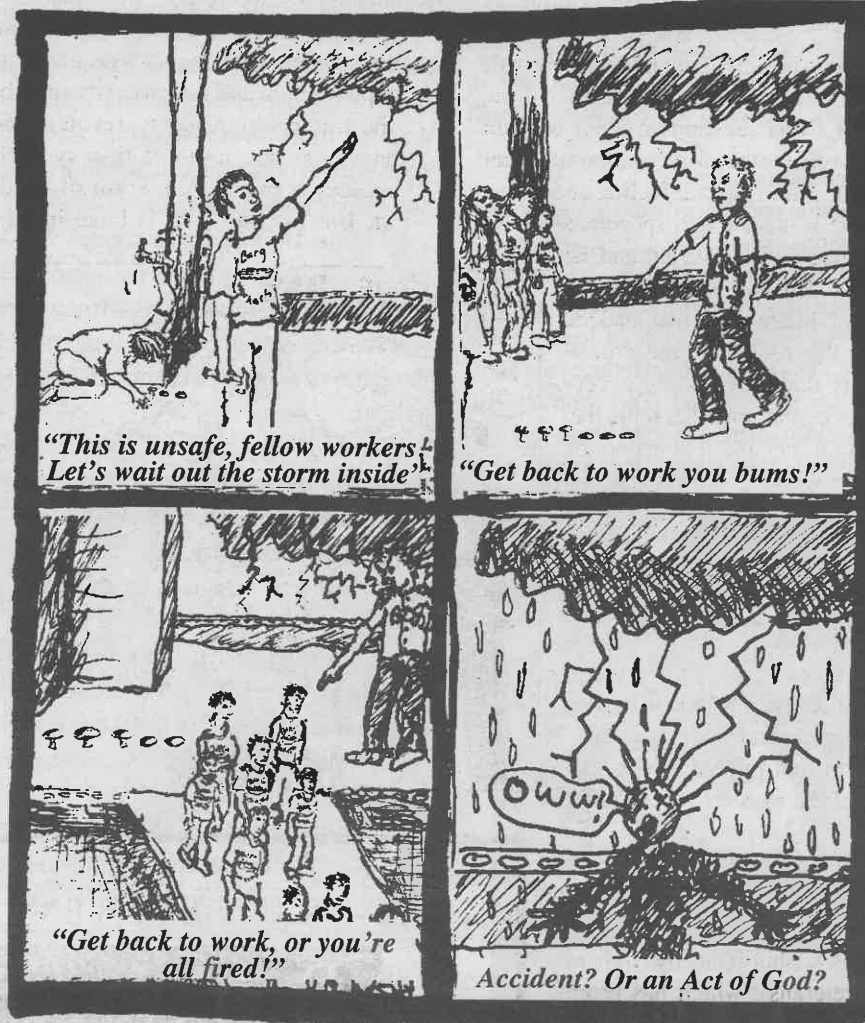 "This is unsafe, fellow workers.
Let's wait out the storm inside"
"Get back to work you bums!"
"Get back to work, or you're
all fired!"
OWW!
Accident? Or an Act of God?